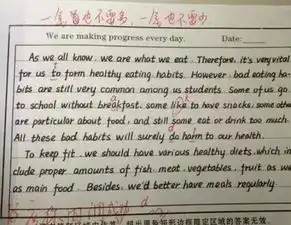 一气冒也不要多, 一舍也不要少.
We are making progress every day. Date:
As we all know, we are what we eat. Therefore, it's very vital
for us to form healthy eating habits. However, bad eating ha-
bits are still very common among us students. Some of us go
to school without breakfast, some like to have snacks, some othe
are particular about food, and still some eat or drink too much.
All these bad habits will surely do harm to our health.
To keep fit, we should have various healthy diets, which in
clude proper amounts of fish, meat, vegetables, fruit as we
as main food. Besides, we'd better have meals regularly.
超出黑色矩形边框限定区域的答案无效。